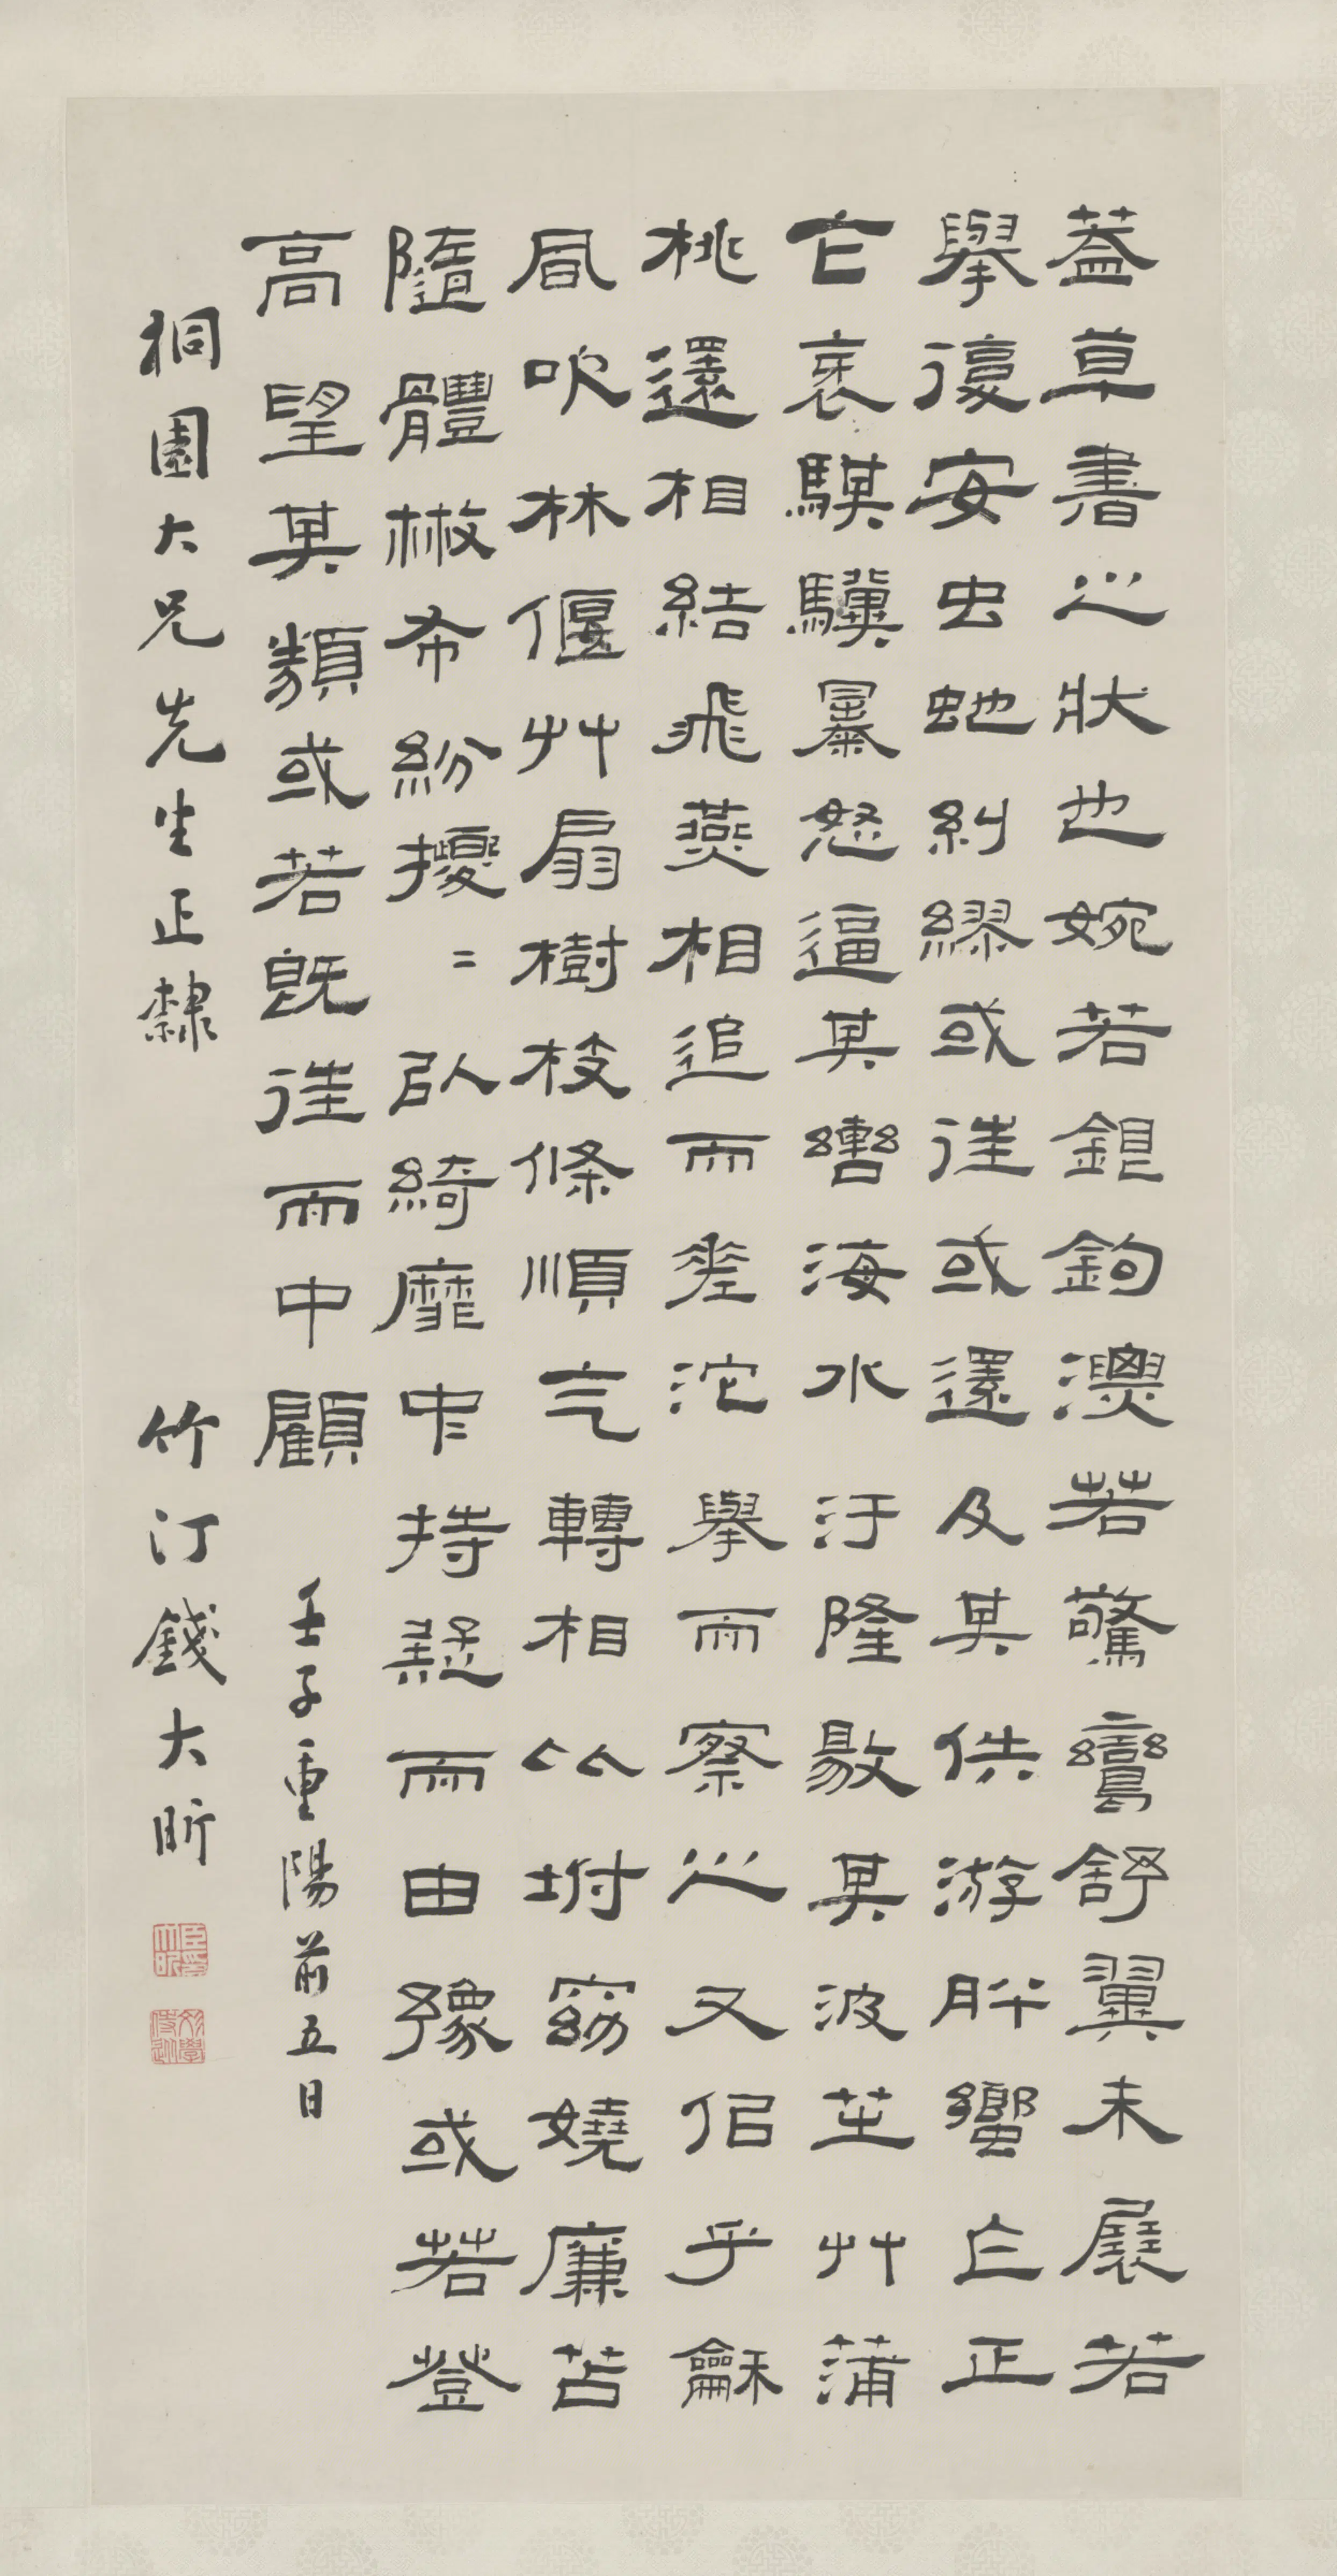 葢草書之狀也婉若銀鉤漂若驚鸞舒翼未展若
舉復安虫虵糾繆或往或還及其佚游肸蠁乍正
乍衺騏驥暴怒逼其轡海水汙隆敭其波芝艸蒲
桃還相結飛燕相追而差沱舉而察之又佀乎龢
風吹林偃艸扇樹枝條順气轉相比坿窈嬈廉苫
隨體㪚布紛擾〻㠯綺靡中持疑而由豫或若登
高望其類或若既往而中顧 壬子重陽前五日
桐園大兄先生正隸 竹汀錢大昕